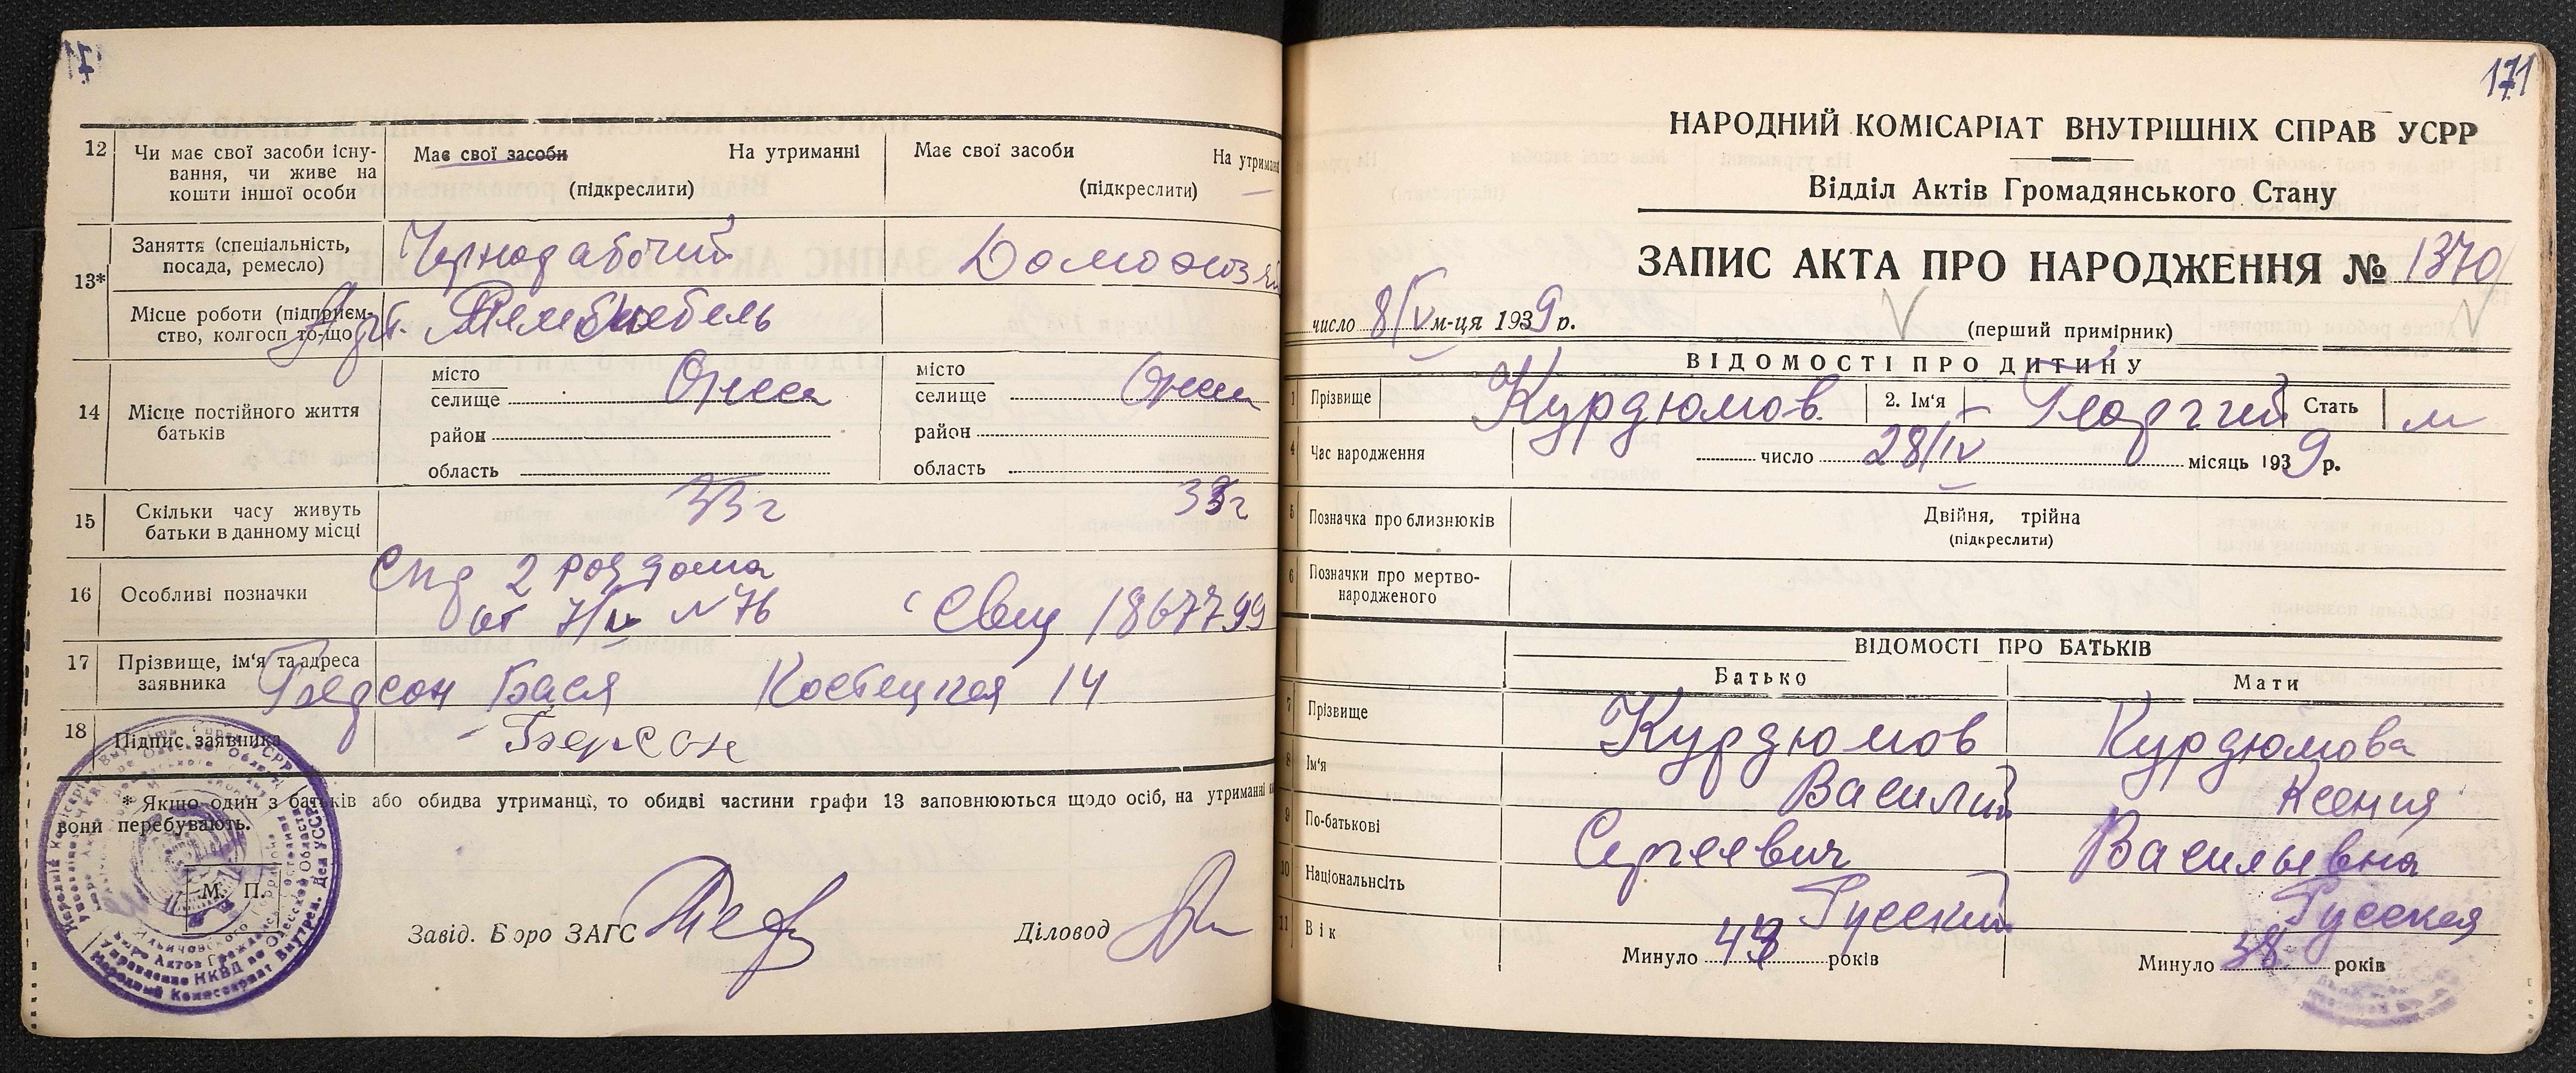 12 Чи має свої засоби існу-
вання, чи живе на
кошти іншої особи
Має свої засоби На утриманні
(підкреслити)
Має свої засоби На утриман
(підкреслити)
13* Заняття (спеціальність,
посада, ремесло)
Чернорабочий
Домохозяй
Місце роботи (підприєм-
ство, колгосп то-що)
Арт.
14 Місце постійного життя
батьків
місто
селище Одесса
район
область
місто
селище Одесса
район
область
15 Скільки часу живуть
батьки в данному місці
33 г
33 г
16 Особливі позначки
Спр 2 род дома
от 7/V N 76 Свид 1867799
17 Прізвище, ім'я та адреса
заявника
Бася Костецкая 14
18 Підпис заявника
* Якщо один з батьків або обидва утриманці, то обидві частини графи 13 заповнюються щодо осіб, на утриманні
вони перебувають.
М. П.
Завід. Бюро ЗАГС
Діловод
171
НАРОДНИЙ КОМІСАРІАТ ВНУТРІШНІХ СПРАВ УСРР
Відділ Актів Громадянського Стану
ЗАПИС АКТА ПРО НАРОДЖЕННЯ № 1370
число 8/V м-ця 1939 р.
(перший примірник)
ВІДОМОСТІ ПРО ДИТИНУ
1 Прізвище Курдюмов 2. Ім'я Георгий Стать м
4 Час народження число 28/IV місяць 1939 р.
5 Позначка про близнюків Двійня, трійна
(підкреслити)
6 Позначки про мертво-
народженого
ВІДОМОСТІ ПРО БАТЬКІВ
Батько Мати
7 Прізвище Курдюмов Курдюмова
8 Ім'я Василий Ксения
9 По-батькові Сергеевич Васильевна
10 Національність Русский Русская
11 Вік Минуло 43 років Минуло 38 років